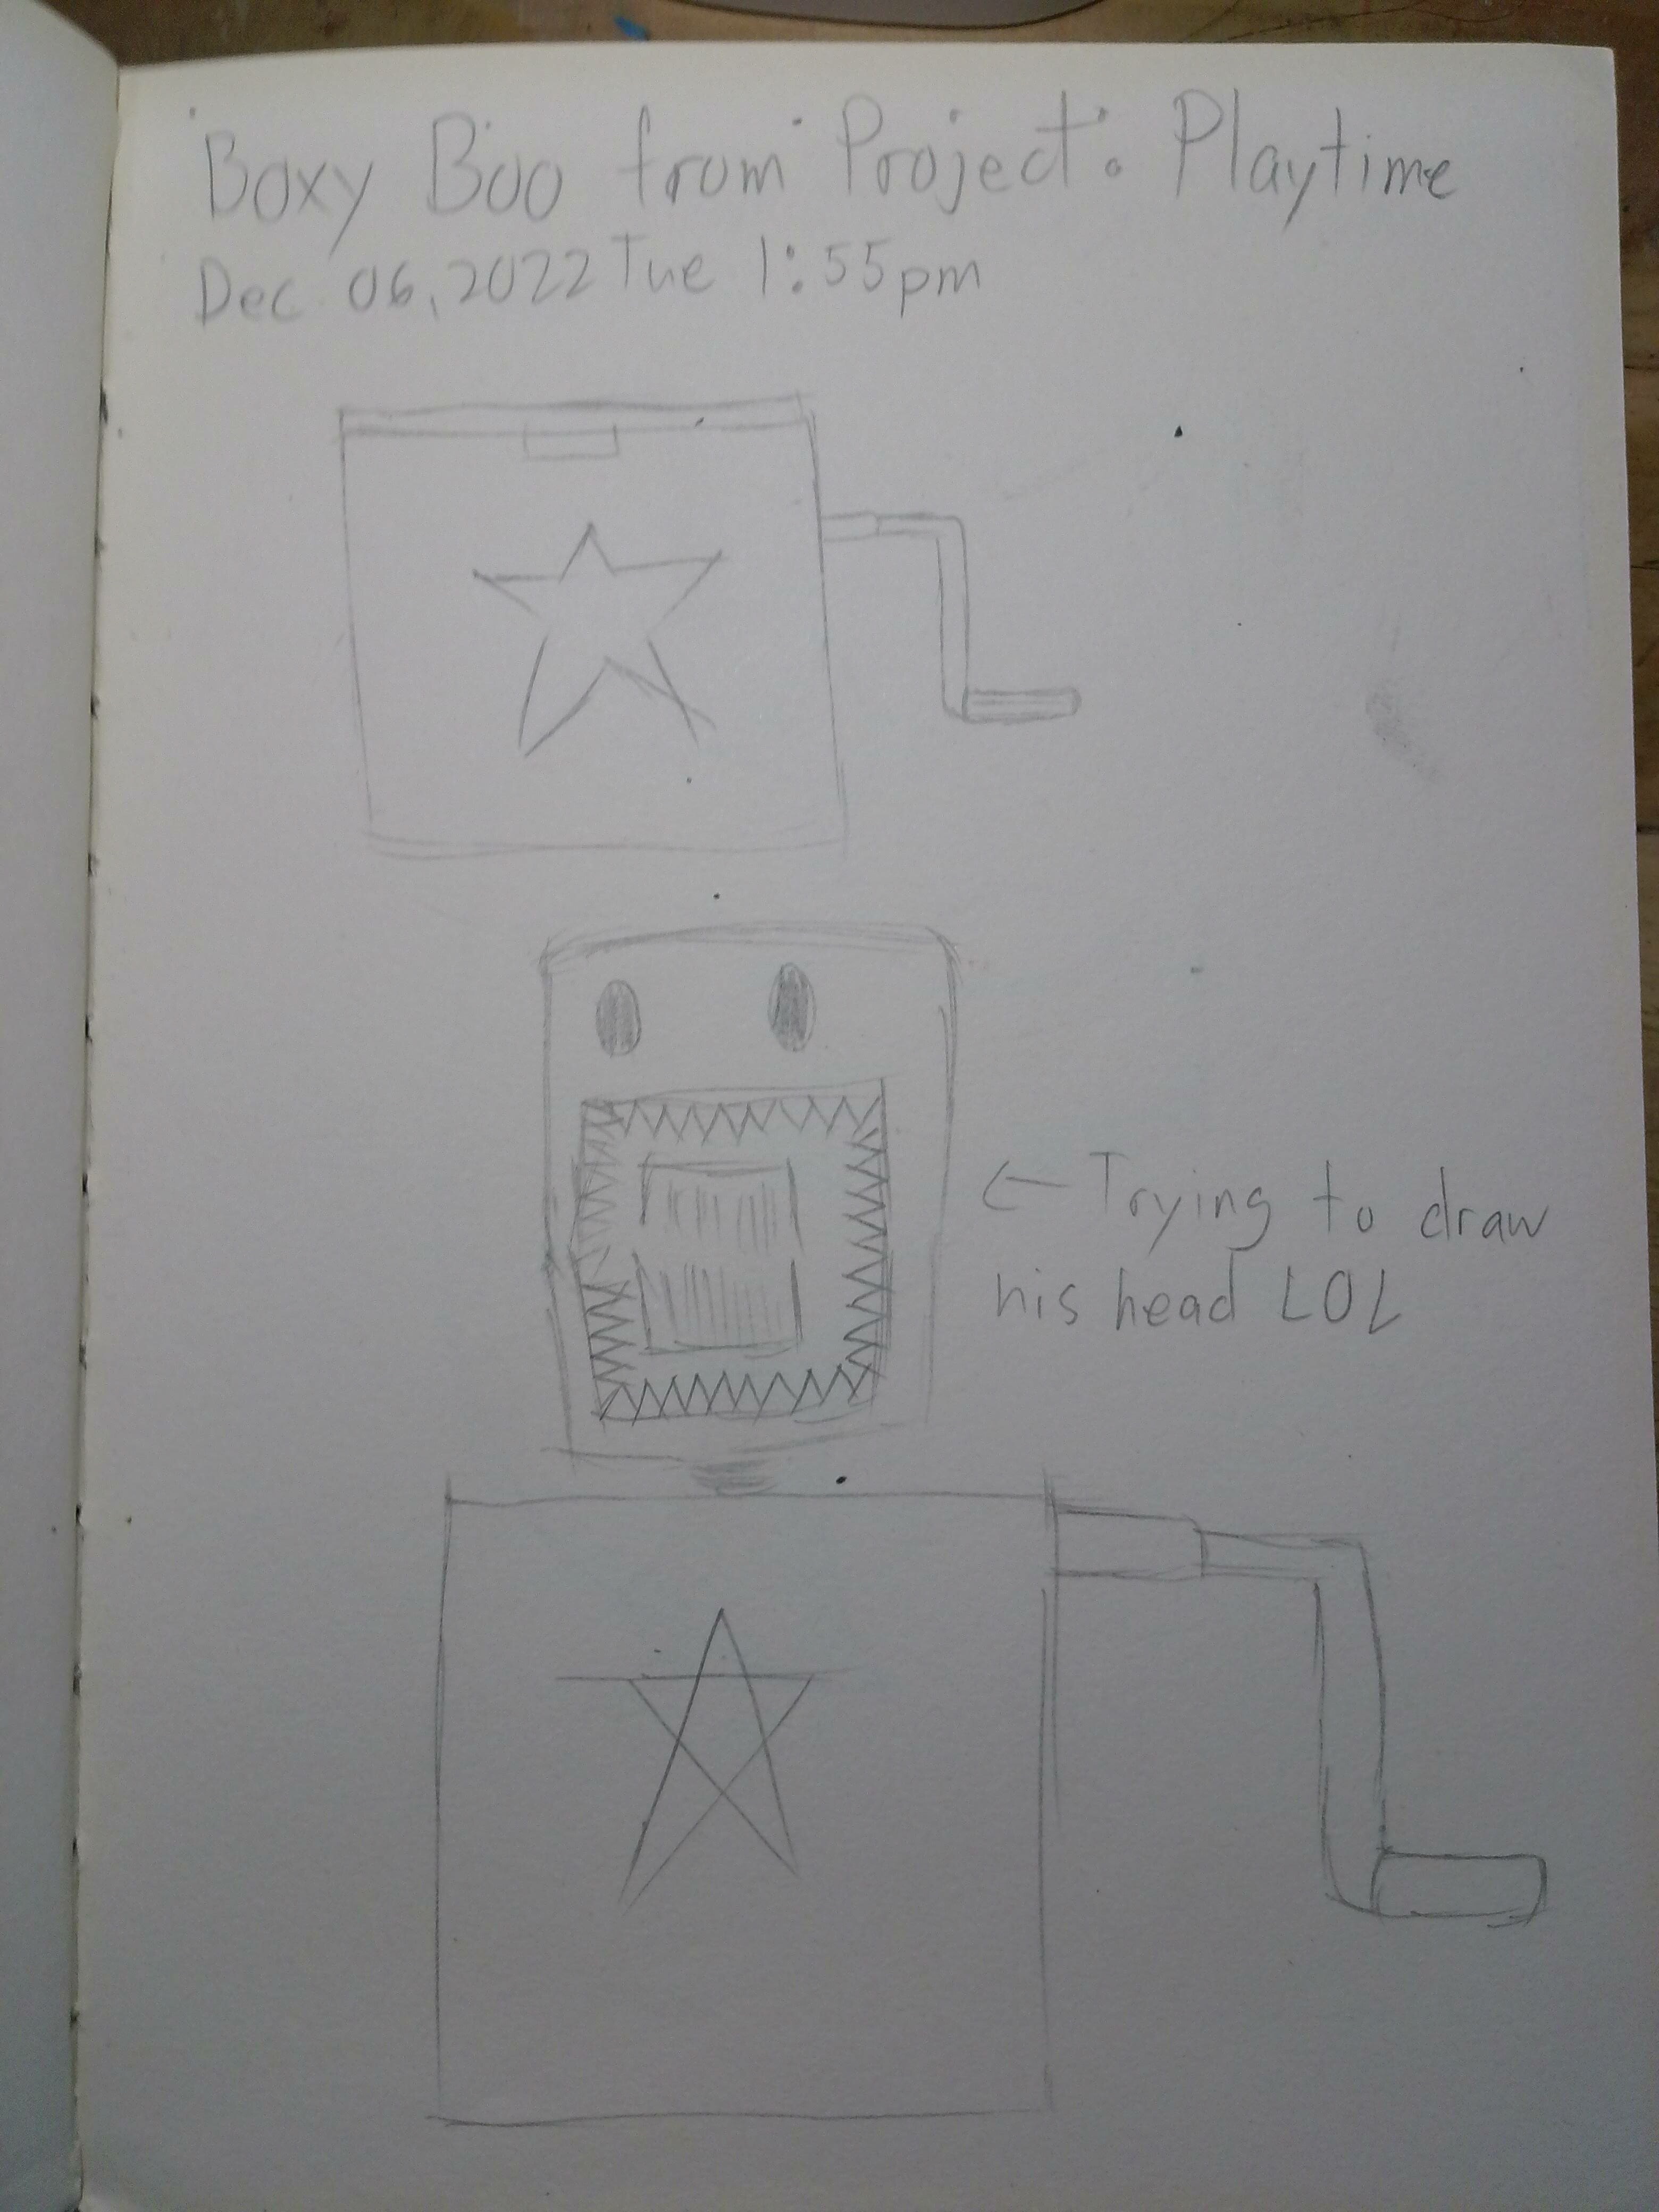 Boxy Boo from Project: Playtime
Dec 06, 2022 Tue 1:55pm
← Trying to draw
his head LOL